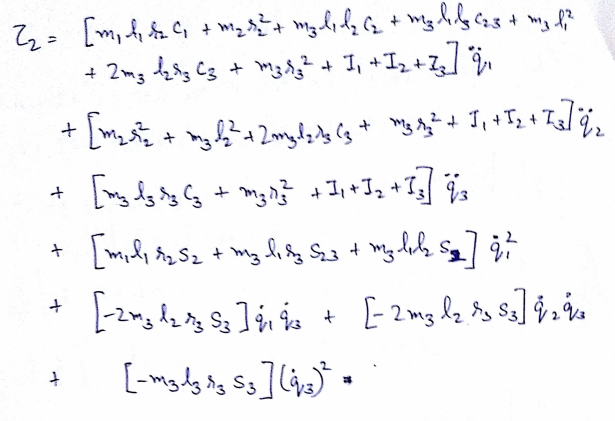 τ₂ = [m₁ l₁ r₂ c₁ + m₂ r₂² + m₃ l₁ l₂ c₂ + m₃ l₁ r₃ c₂₃ + m₃ l₂²
+ 2m₃ l₂ r₃ c₃ + m₃ r₃² + I₁ + I₂ + I₃] q̈₁
+ [m₂ r₂² + m₃ l₂² + 2m₃ l₂ r₃ c₃ + m₃ r₃² + I₁ + I₂ + I₃] q̈₂
+ [m₃ l₃ r₃ c₃ + m₃ r₃² + I₁ + I₂ + I₃] q̈₃
+ [m₁ l₁ r₂ s₂ + m₃ l₁ r₃ s₂₃ + m₃ l₁ l₂ s₂] q̇₁²
+ [-2m₃ l₂ r₃ s₃] q̇₁ q̇₃ + [-2m₃ l₂ r₃ s₃] q̇₂ q̇₃
+ [-m₃ l₃ r₃ s₃] (q̇₃)²